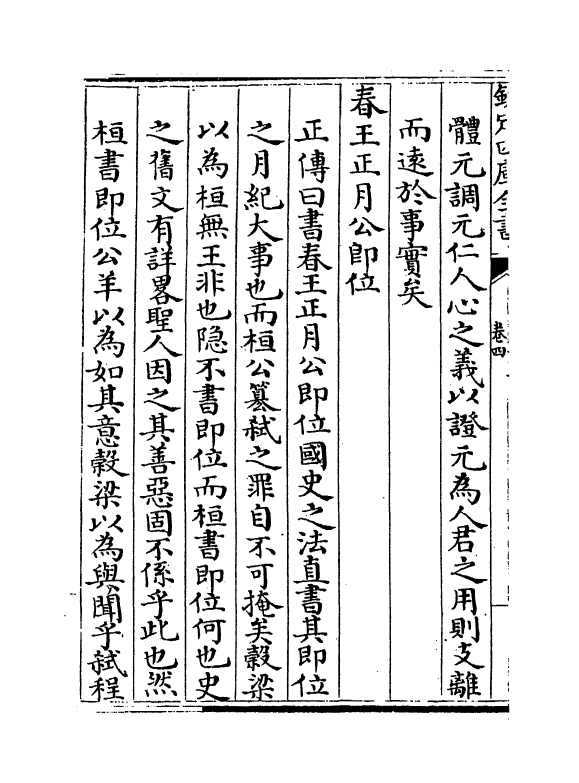 欽定四庫全書
卷四
體元調元仁人心之義以證元為人君之用則支離
而遠於事實矣
春王正月公即位
正傳曰書春王正月公即位國史之法直書其即位
之月紀大事也而桓公簒弑之罪自不可掩矣穀梁
以為桓無王非也隐不書即位而桓書即位何也史
之舊文有詳畧聖人因之其善惡固不係乎此也然
桓書即位公羊以為如其意穀梁以為與聞乎弑程